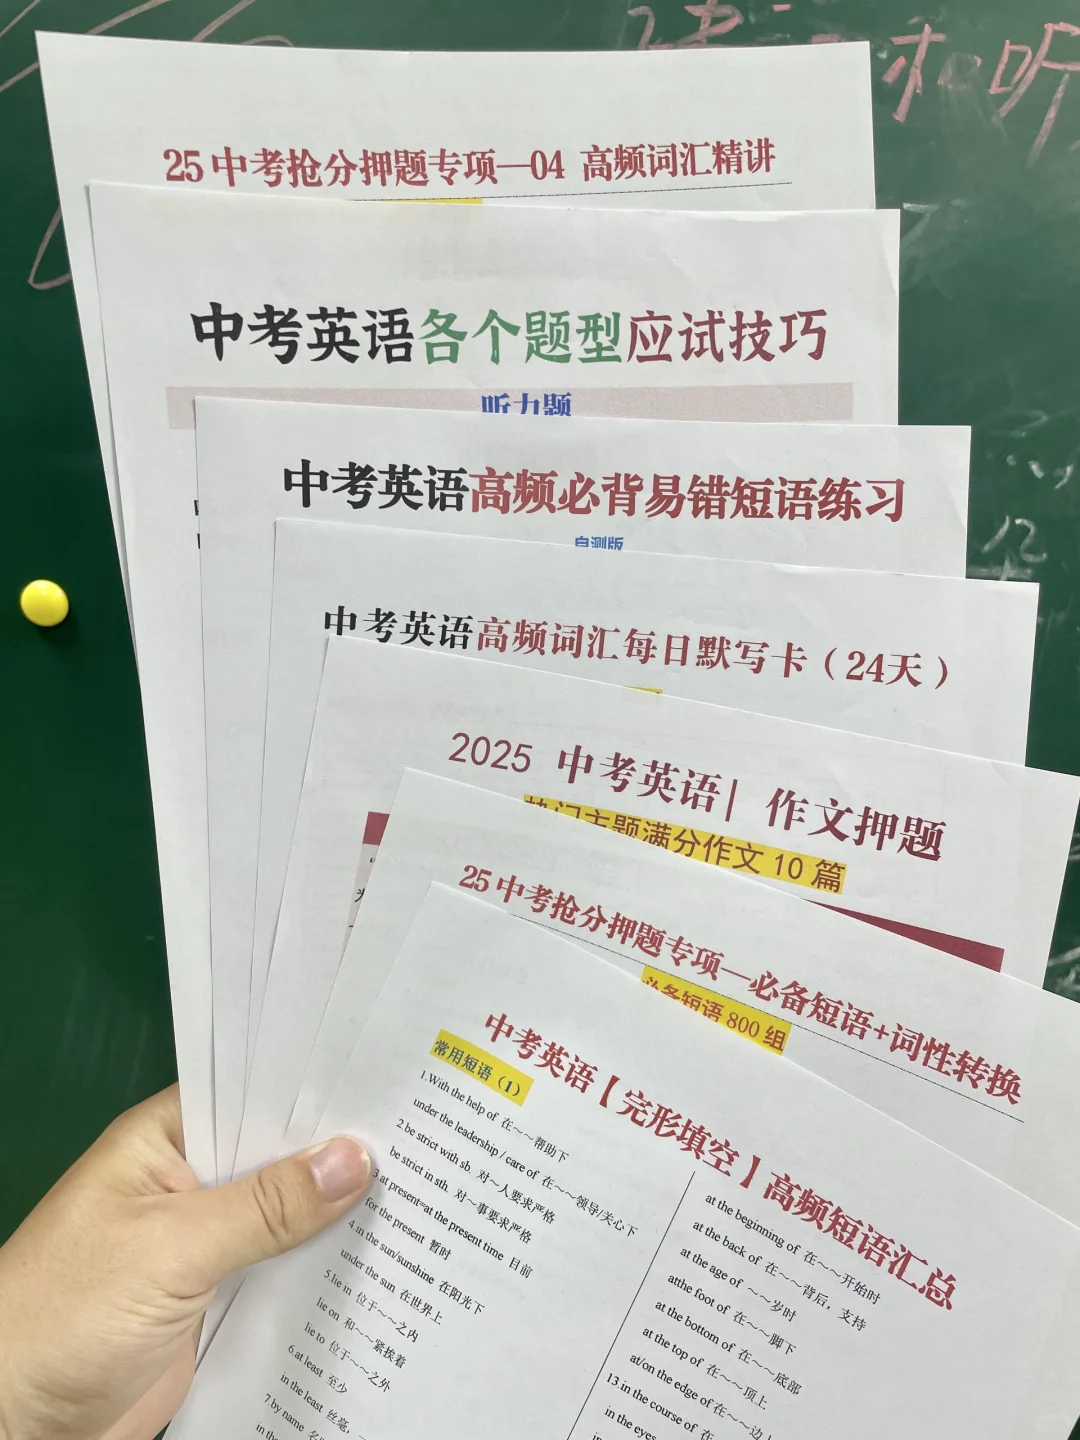 听
12
25中考抢分押题专项—04 高频词汇精讲
中考英语各个题型应试技巧
听力题
中考英语高频必背易错短语练习
自测版
中考英语高频词汇每日默写卡（24天）
2025 中考英语| 作文押题
热门主题满分作文10篇
25中考抢分押题专项—必备短语+词性转换
必备短语800组
中考英语【完形填空】高频短语汇总
常用短语（1）
1.With the help of 在～～帮助下
under the leadership / care of 在～～领导/关心下
2.be strict with sb. 对～人要求严格
be strict in sth. 对～事要求严格
3 at present=at the present time 目前
for the present 暂时
4 in the sun/sunshine 在阳光下
under the sun 在世界上
5.lie in 位于～～之内
lie on 和～～紧挨着
lie to 位于～～之外
6.at least 至少
in the least 丝毫，
7.by name
in the
at the beginning of 在～～开始时
at the back of 在～～背后，支持
at the age of ～～岁时
atthe foot of 在～～脚下
at the bottom of 在～～底部
at the top of 在～～顶上
at/on the edge of 在～～边上
13.in the course of 在
in the eyes